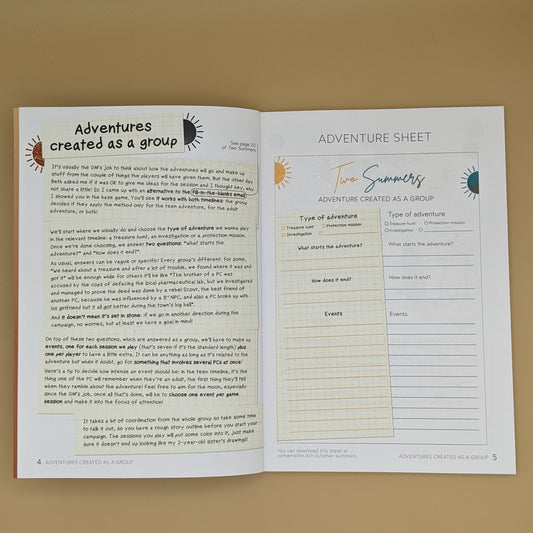 Adventures
created as a group
See page 20
of Two Summers
It's usually the GM's job to think about how the adventures will go and make up
stuff from the couple of things the players will have given them. But the other day
Beth asked me if it was OK to give me ideas for the session and I thought hey, why
not share a little! So I came up with an alternative to the fill-in-the-blanks email
I showed you in the base game. You'll see it works with both timelines: the group
decides if they apply the method only for the teen adventure, for the adult
adventure, or both!
We'll start where we usually do and choose the type of adventure we wanna play
in the relevant timeline: a treasure hunt, an investigation or a protection mission.
Once we're done choosing, we answer two questions: "What starts the
adventure?" and "How does it end?"
As usual, answers can be vague or specific! Every group's different: for some,
"We heard about a treasure and after a lot of trouble, we found where it was and
got it" will be enough while for others it'll be like "The brother of a PC was
accused by the cops of defacing the local pharmaceutical lab, but we investigated
and managed to prove the deed was done by a rebel Scout, the best friend of
another PC, because he was influenced by a NPC, and also a PC broke up with
his girlfriend but it all got better during the town's big ball".
And it doesn't mean it's set in stone: if we go in another direction during the
campaign, no worries, but at least we have a goal in mind!
On top of these two questions, which are answered as a group, we'll have to make up
events, one for each session we play (that's seven if it's the standard length) plus
one per player to have a little extra. It can be anything as long as it's related to the
adventure but when it doubt, go for something that involves several PCs at once!
Here's a tip to decide how intense an event should be: in the teen timeline, it's the
thing one of the PC will remember when they're an adult, the first thing they'll tell
when they ramble about the adventure! Feel free to aim for the moon, especially
since the GM's job, once all that's done, will be to choose one event per game
session and make it into the focus of attention!
It takes a bit of coordination from the whole group so take some time
to talk it out, so you have a rough story outline before you start your
campaign. The sessions you play will put some color into it, just make
sure it doesn't end up looking like my 2-year-old sister's drawings!
4 ADVENTURES CREATED AS A GROUP
ADVENTURE SHEET
Two Summers
ADVENTURE CREATED AS A GROUP
Type of adventure
Treasure hunt Protection mission
Investigation
What starts the adventure?
How does it end?
Events
Type of adventure
Treasure hunt Protection mission
Investigation
What starts the adventure?
How does it end?
Events
You can download this sheet at
comemartin.itch.io/other-summers
ADVENTURES CREATED AS A GROUP 5